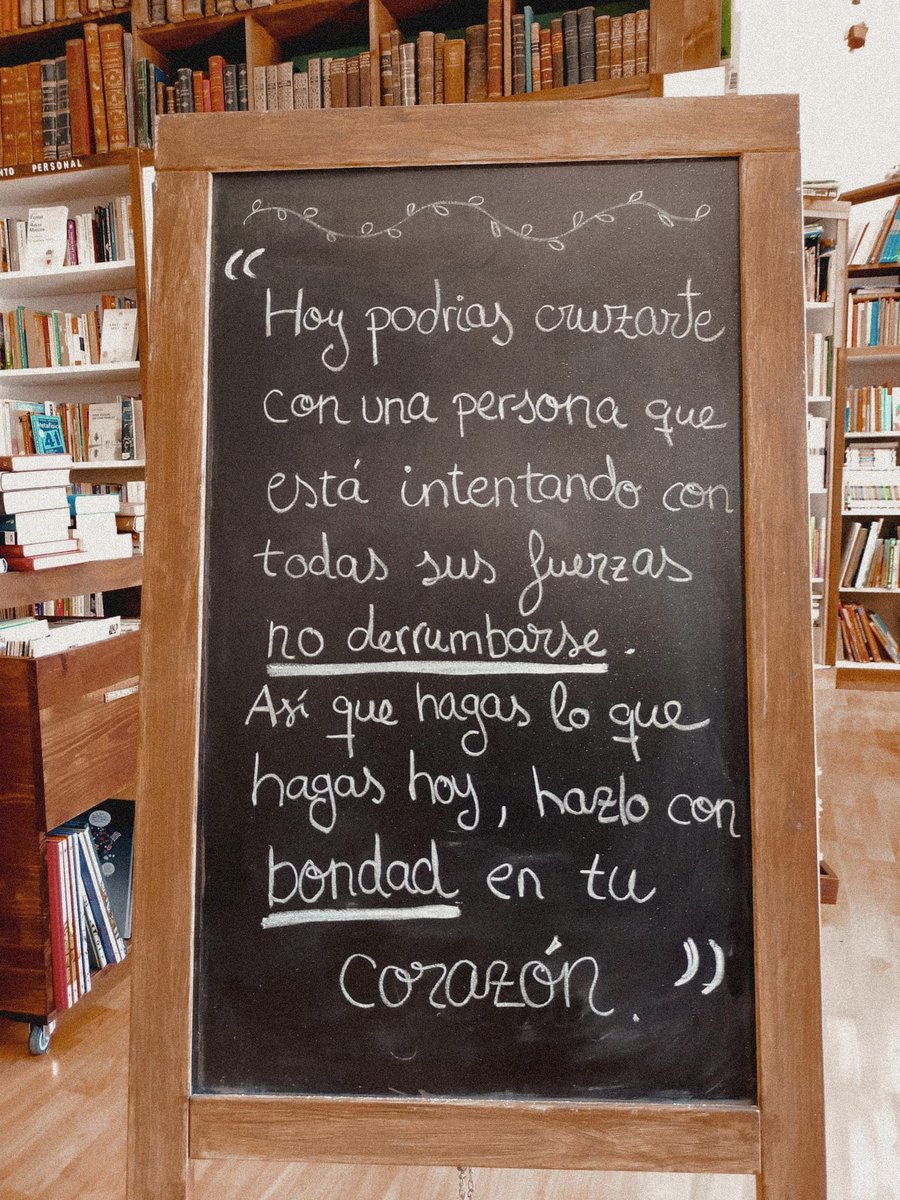 NTO PERSONAL
“
Hoy podrias cruzarte
con una persona que
está intentando con
todas sus fuerzas
no derrumbarse.
Así que hagas lo que
hagas hoy, hazlo con
bondad en tu
corazón. ”
41